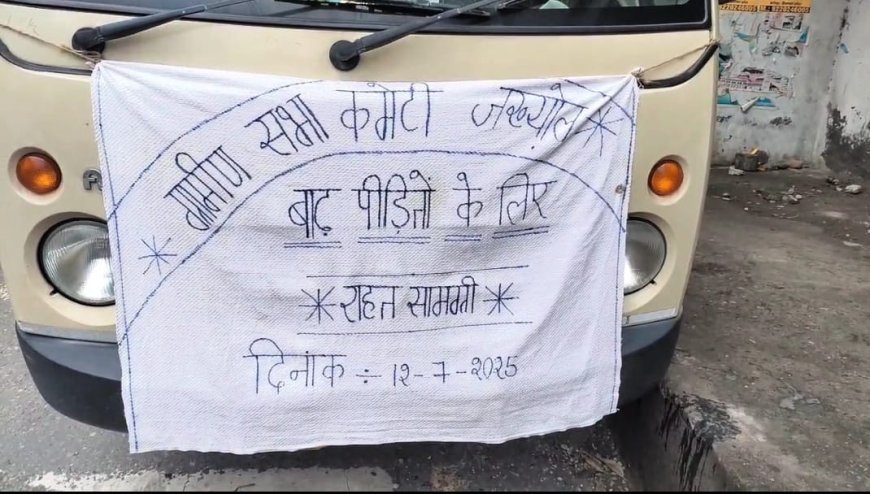 ग्रामीण सभा कमेटी जख्योल
बाढ़ पीड़ितों के लिए
राहत सामग्री
दिनांक ÷ 12-7-2025